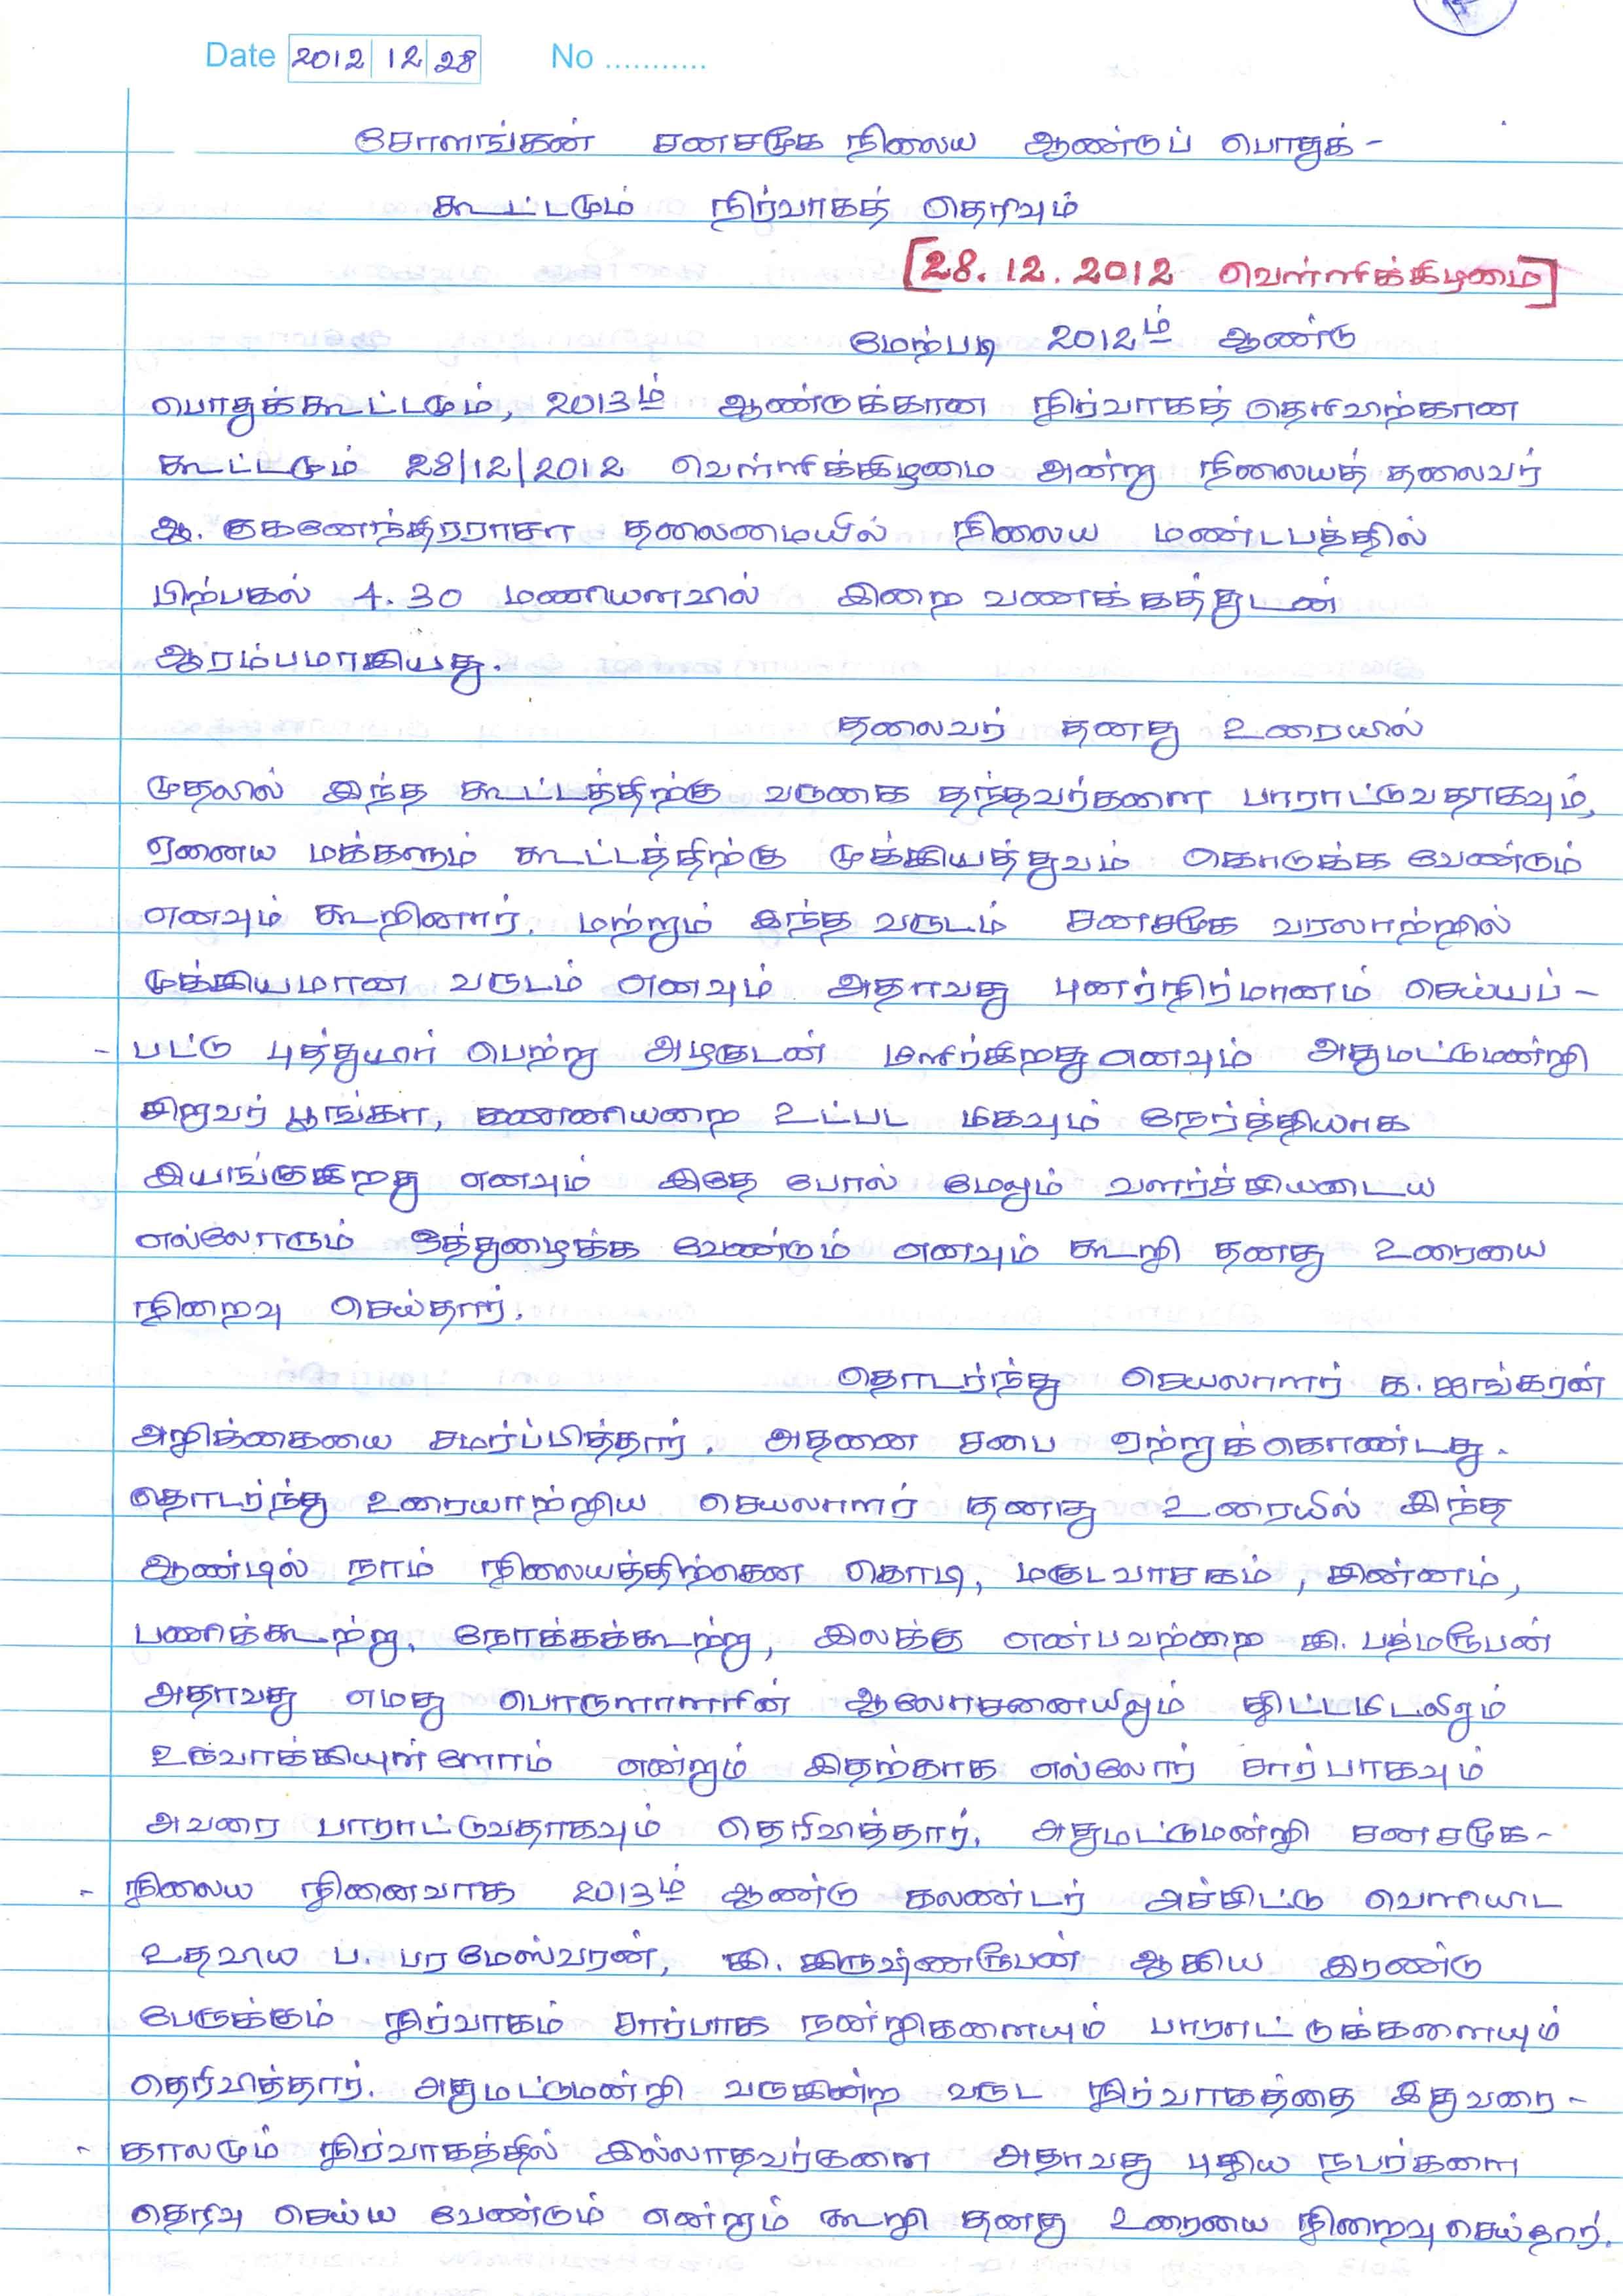 Date 2012 12 28 No ...........
சோளங்கன் சனசமூக நிலைய ஆண்டுப் பொதுக் -
கூட்டமும் நிர்வாகத் தெரிவும்
[28.12.2012 வெள்ளிக்கிழமை]
மேற்படி 2012ம் ஆண்டு
பொதுக்கூட்டமும், 2013ம் ஆண்டுக்கான நிர்வாகத் தெரிவிற்கான
கூட்டமும் 28/12/2012 வெள்ளிக்கிழமை அன்று நிலையத் தலைவர்
ஆ. குகணேந்திரராசா தலைமையில் நிலைய மண்டபத்தில்
பிற்பகல் 4.30 மணியளவில் இறை வணக்கத்துடன்
ஆரம்பமாகியது.
தலைவர் தனது உரையில்
முதலில் இந்த கூட்டத்திற்கு வருகை தந்தவர்களை பாராட்டுவதாகவும்,
ஏனைய மக்களும் கூட்டத்திற்கு முக்கியத்துவம் கொடுக்க வேண்டும்
எனவும் கூறினார். மற்றும் இந்த வருடம் சனசமூக வரலாற்றில்
முக்கியமான வருடம் எனவும் அதாவது புனர்நிர்மானம் செய்யப் -
- பட்டு புத்துயிர் பெற்று அழகுடன் மிளிர்கிறது எனவும் அதுமட்டுமன்றி
சிறுவர் பூங்கா, கணணியறை உட்பட மிகவும் நேர்த்தியாக
இயங்குகிறது எனவும் இதே போல் மேலும் வளர்ச்சியடைய
எல்லோரும் ஒத்துழைக்க வேண்டும் எனவும் கூறி தனது உரையை
நிறைவு செய்தார்.
தொடர்ந்து செயலாளர் க. ஐங்கரன்
அறிக்கையை சமர்ப்பித்தார். அதனை சபை ஏற்றுக்கொண்டது.
தொடர்ந்து உரையாற்றிய செயலாளர் தனது உரையில் இந்த
ஆண்டில் நாம் நிலையத்திற்கென கொடி, மகுடவாசகம், சின்னம்,
பணிக்கூற்று, நோக்கக்கூற்று, இலக்கு என்பவற்றை கி. பத்மரூபன்
அதாவது எமது பொருளாளரின் ஆலோசனையிலும் திட்டமிடலிலும்
உருவாக்கியுள்ளோம் என்றும் இதற்காக எல்லோர் சார்பாகவும்
அவரை பாராட்டுவதாகவும் தெரிவித்தார். அதுமட்டுமன்றி சனசமூக -
- நிலைய நினைவாக 2013ம் ஆண்டு கலண்டர் அச்சிட்டு வெளியிட
உதவிய ப. பரமேஸ்வரன், கி. கிருஷ்ணரூபன் ஆகிய இரண்டு
பேருக்கும் நிர்வாகம் சார்பாக நன்றிகளையும் பாராட்டுக்களையும்
தெரிவித்தார். அதுமட்டுமன்றி வருகின்ற வருட நிர்வாகத்தை இதுவரை -
- காலமும் நிர்வாகத்தில் இல்லாதவர்களை அதாவது புதிய நபர்களை
தெரிவு செய்ய வேண்டும் என்றும் கூறி தனது உரையை நிறைவு செய்தார்.